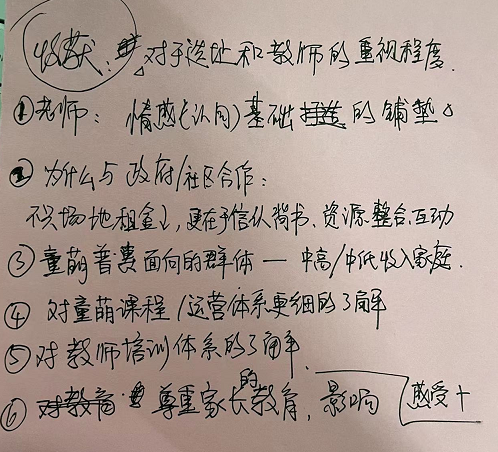 收获：对于选址和教师的重视程度.
①老师：情感(认同)基础的铺垫。
②为什么与政府/社区合作：
不只场地租金↓,更在于信认背书、资源整合、互动
③童萌普惠面向的群体 — 中高/中低收入家庭.
④对童萌课程/运营体系更细的了解
⑤对教师培训体系的了解.
⑥对教育 尊重家长的教育, 影响 感受+